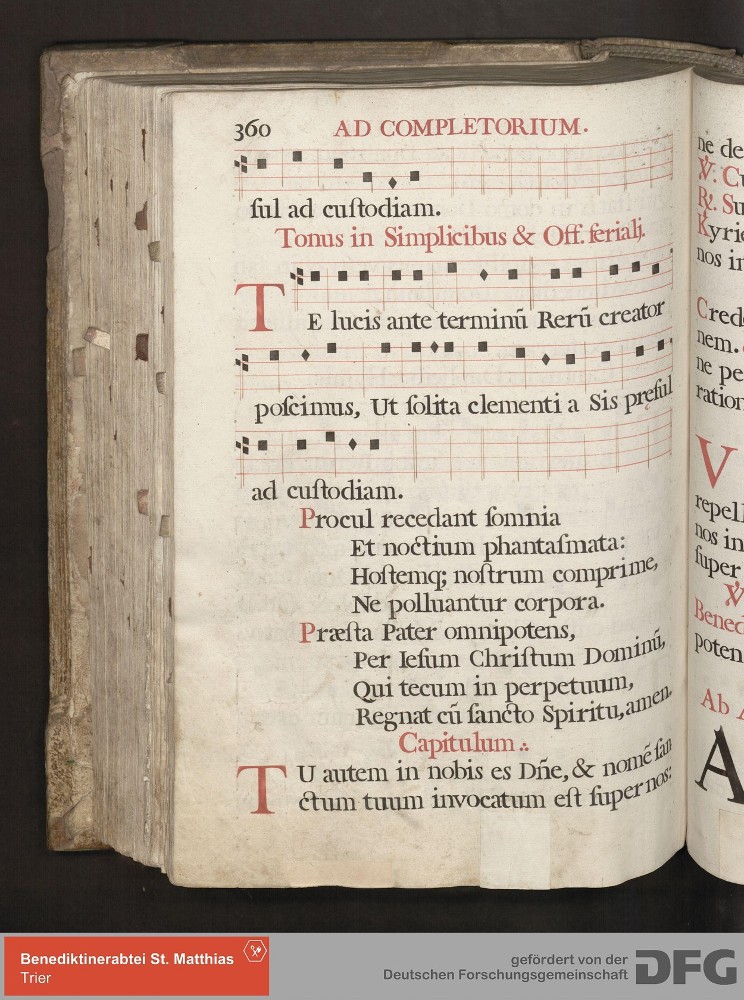 360 AD COMPLETORIUM.
ſul ad cuſtodiam.
Tonus in Simplicibus & Off. ferialj.
TE lucis ante terminũ Rerũ creator
poſcimus, Ut ſolita clementi a Sis pręſul
ad cuſtodiam.
Procul recedant ſomnia
Et noctium phantaſmata:
Hoſtemq; noſtrum comprime,
Ne polluantur corpora.
Præſta Pater omnipotens,
Per Ieſum Chriſtum Dominũ,
Qui tecum in perpetuum,
Regnat cũ ſancto Spiritu, amen.
Capitulum ∴
TU autem in nobis es Dñe, & nomẽ ſan
ctum tuum invocatum eſt ſuper nos:
ne de
℣. Cu
℟. Su
Kyrie
nos in
Cred
nem.
ne pe
ration
V
repell
nos in
ſuper
℣
Bened
poten
Ab A
A
Benediktinerabtei St. Matthias
Trier
gefördert von der
Deutschen Forschungsgemeinschaft
DFG